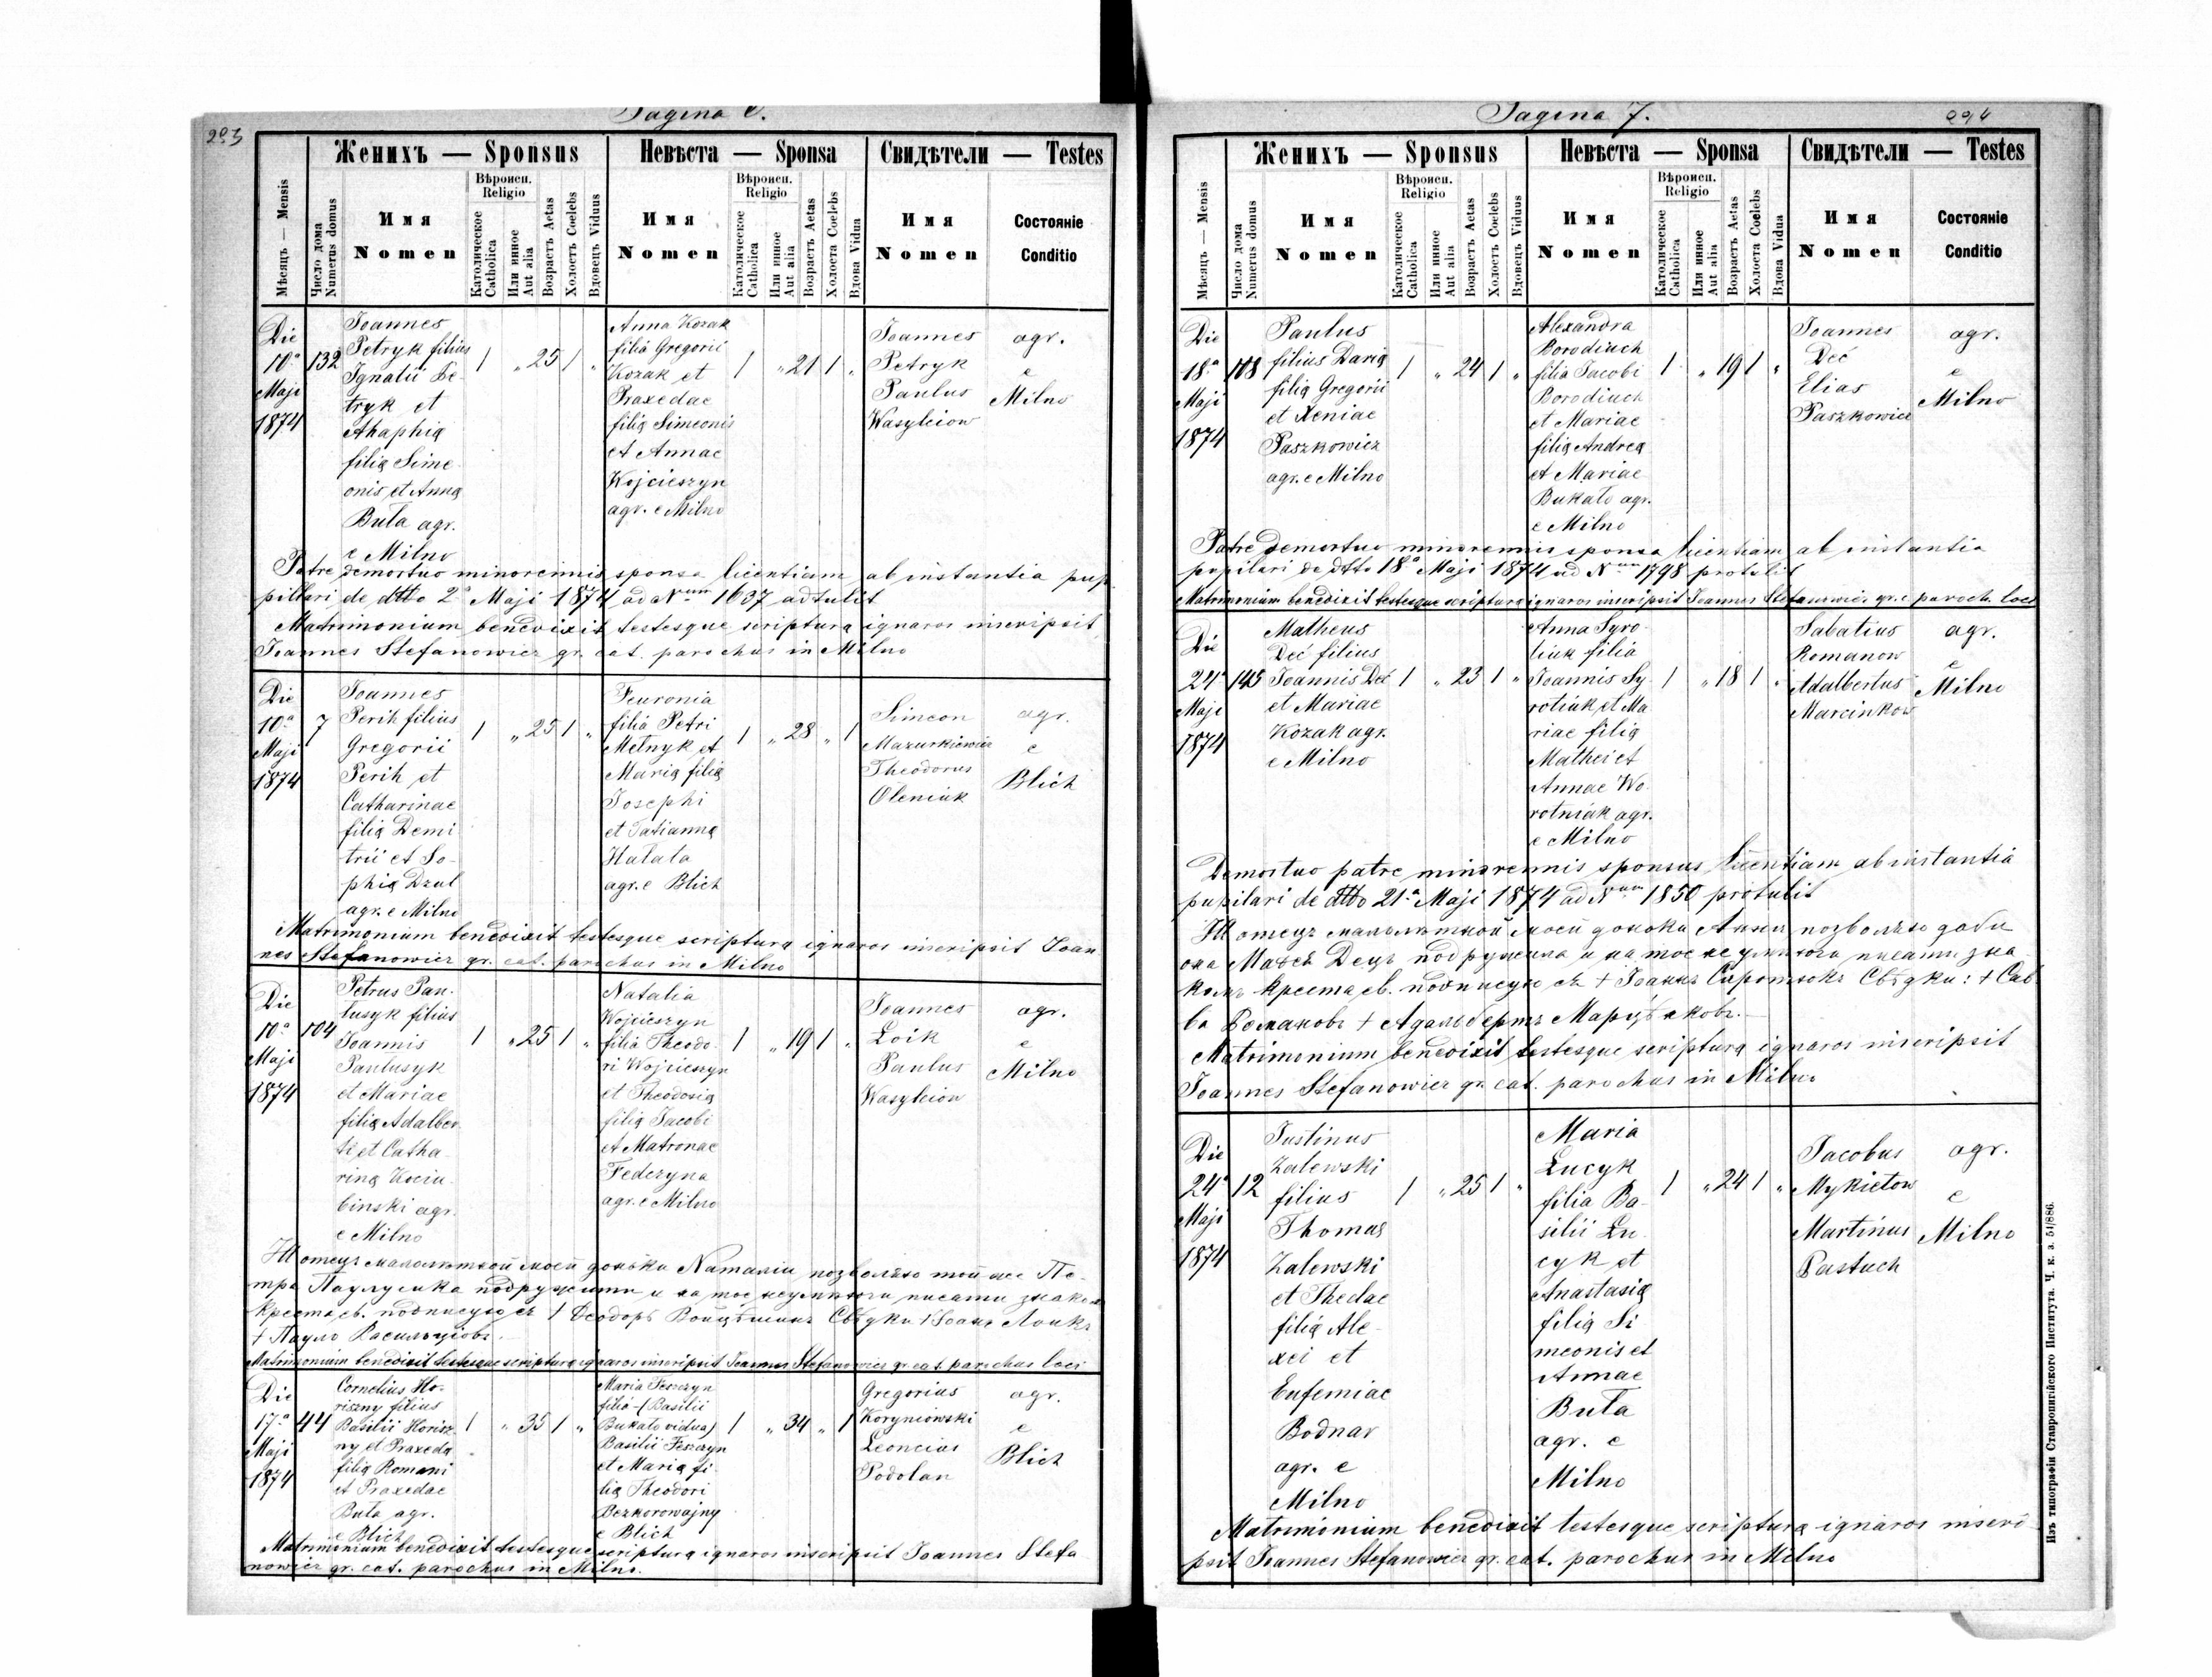 293
Pagina 6.
Женихъ — Sponsus
Невѣста — Sponsa
Свидѣтели — Testes
Мѣсяцъ — Mensis
Число дома
Numerus domus
Имя
Nomen
Вѣроисп.
Religio
Католическое
Catholica
Или инное
Aut alia
Возрастъ Aetas
Холостъ Coelebs
Вдовецъ Viduus
Имя
Nomen
Вѣроисп.
Religio
Католическое
Catholica
Или инное
Aut alia
Возрастъ Aetas
Холоста Coelebs
Вдова Vidua
Имя
Nomen
Состояніе
Conditio
Die
10ª
Maji
1874
132
Joannes
Petryk filius
Ignatii Pe-
tryk et
Ahaphia
filia Sime
onis et Anna
Buła agr.
e Milno
1 " 25 1 "
Anna Kozak
filia Gregorii
Kozak et
Praxedae
filia Simeonis
et Annae
Wojcieszyn
agr. e Milno
1 " 21 1 "
Joannes
Petryk
Paulus
Wasylciow
agr.
e
Milno
Patre demortuo minorennis sponsa licentiam ab instantia pup
pillari de dtto 2ª Maji 1874 ad Num 1637 adtulit
Matrimonium benedixit testesque scriptura ignaros inscripsit
Joannes Stefanowicz gr. cat. parochus in Milno
Die
10ª
Maji
1874
7
Joannes
Perih filius
Gregorii
Perih et
Catharinae
filia Demi
trii et So-
phia Dzul
agr. e Milno
1 " 25 1 "
Feuronia
filia Petri
Melnyk et
Maria filia
Josephi
et Tatianna
Hałata
agr. e Blich
1 " 28 " 1
Simeon
Mazurkiewicz
Theodorus
Oleniuk
agr.
e
Blich
Matrimonium benedixit testesque scriptura ignaros inscripsit Joan
nes Stefanowicz gr. cat. parochus in Milno
Die
10ª
Maji
1874
104
Petrus Pau-
lusyk filius
Joannis
Paulusyk
et Mariae
filia Adalber
ti et Catha-
rina Kociu-
binski agr.
e Milno
1 " 25 1 "
Natalia
Wojcieszyn
filia Theodo-
ri Wojcieszyn
et Theodosia
filia Jacobi
et Matronae
Federyna
agr. e Milno
1 " 19 1 "
Joannes
Łoik
Paulus
Wasylciow
agr.
e
Milno
отецъ малолѣтной моей доньки Наталіи позволяю той же Пе-
тра подружити и на тое неумѣючи писати знаком
Креста св. подписую ся † Ѳеодоръ Войцѣшинъ Свѣдки † Іоанъ Лоикъ
† Паулъ Васильцівъ.
Matrimonium benedixit testesque scriptura ignaros inscripsit Joannes Stefanowicz gr. cat. parochus loci
Die
17ª
Maji
1874
44
Cornelius Ho-
riszny filius
Basilii Horisz
ny et Praxeda
filia Romani
et Praxedae
Buła agr.
e Blich
1 " 35 1 "
Maria Feszczyn
filia (Basilii
Bukało vidua)
Basilii Feszczyn
et Maria fi-
lia Theodori
Bezkorowajny
e Blich
1 " 34 " 1
Gregorius
Koryniowski
Leoncius
Podolan
agr.
e
Blich
Matrimonium benedixit testesque scriptura ignaros inscripsit Joannes Stefa
nowicz gr. cat. parochus in Milno.
Pagina 7.
294
Женихъ — Sponsus
Невѣста — Sponsa
Свидѣтели — Testes
Мѣсяцъ — Mensis
Число дома
Numerus domus
Имя
Nomen
Вѣроисп.
Religio
Католическое
Catholica
Или инное
Aut alia
Возрастъ Aetas
Холостъ Coelebs
Вдовецъ Viduus
Имя
Nomen
Вѣроисп.
Religio
Католическое
Catholica
Или инное
Aut alia
Возрастъ Aetas
Холоста Coelebs
Вдова Vidua
Имя
Nomen
Состояніе
Conditio
Die
18ª
Maji
1874
108
Paulus
filius Daria
filia Gregorii
et Xeniae
Paszkowicz
agr. e Milno
1 " 24 1 "
Alexandra
Borodiuch
filia Jacobi
Borodiuch
et Mariae
filia Andrea
et Mariae
Bukało agr.
e Milno
1 " 19 1 "
Joannes
Deć
Elias
Paszkowicz
agr.
e
Milno
Patre demortuo minorennis sponsa licentiam ab instantia
pupilari de dtto 18ª Maji 1874 ad Num 1798 protulit
Matrimonium benedixit testesque scriptura ignaros inscripsit Joannes Stefanowicz gr. c. paroch. loci
Die
24ª
Maji
1874
145
Matheus
Deć filius
Joannis Deć
et Mariae
Kozak agr.
e Milno
1 " 23 1 "
Anna Syro-
tiuk filia
Joannis Sy
rotiuk et Ma
riae filia
Mathei et
Annae Wo-
rotniak agr.
e Milno
1 " 18 1 "
Sabatius
Romanow
Adalbertus
Marcinkow
agr.
e
Milno
Demortuo patre minorennis sponsus licentiam ab instantia
pupilari de dtto 21ª Maji 1874 ad Num 1850 protulit
отецъ малолѣтной моей доньки Анны позволяю дабы
она Матѳ. Децъ подружила и на тое не умѣючи писати зна
комъ Креста св. подписую ся † Іоаннъ Сиротюкъ Свѣдки: † Сав
ва Романовъ † Адальбертъ Марцѣнковъ.
Matrimonium benedixit testesque scriptura ignaros inscripsit
Joannes Stefanowicz gr. cat. parochus in Milno
Die
24ª
Maji
1874
12
Justinus
Zalewski
filius
Thomas
Zalewski
et Theclae
filia Ale-
xei et
Eufemiae
Bodnar
agr. e
Milno
1 " 25 1 "
Maria
Łucyk
filia Ba-
silii Łu-
cyk et
Anastasia
filia Si
meonis et
Annae
Buła
agr. e
Milno
1 " 24 1 "
Jacobus
Mykietow
Martinus
Pastuch
agr.
e
Milno
Matrimonium benedixit testesque scriptura ignaros inscri
psit Joannes Stefanowicz gr. cat. parochus in Milno
Изъ типографіи Ставропигійского Института. Ч. к. з. 51/886.